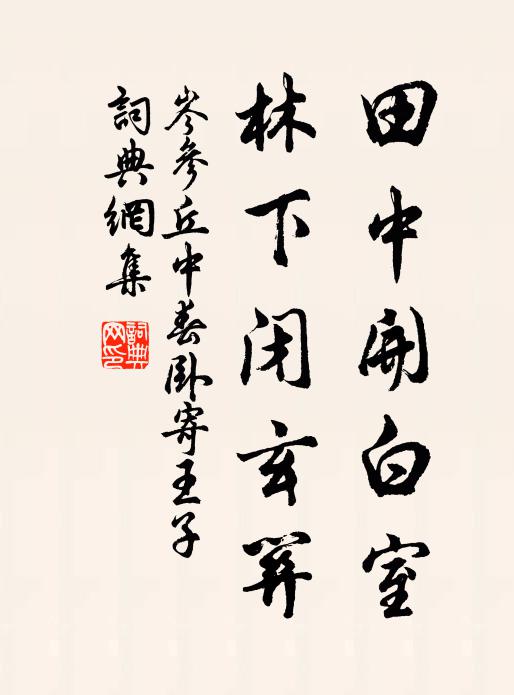 田中開白室
林下閉玄關
岑參丘中春臥寄王子
詞典網集
詞典网印